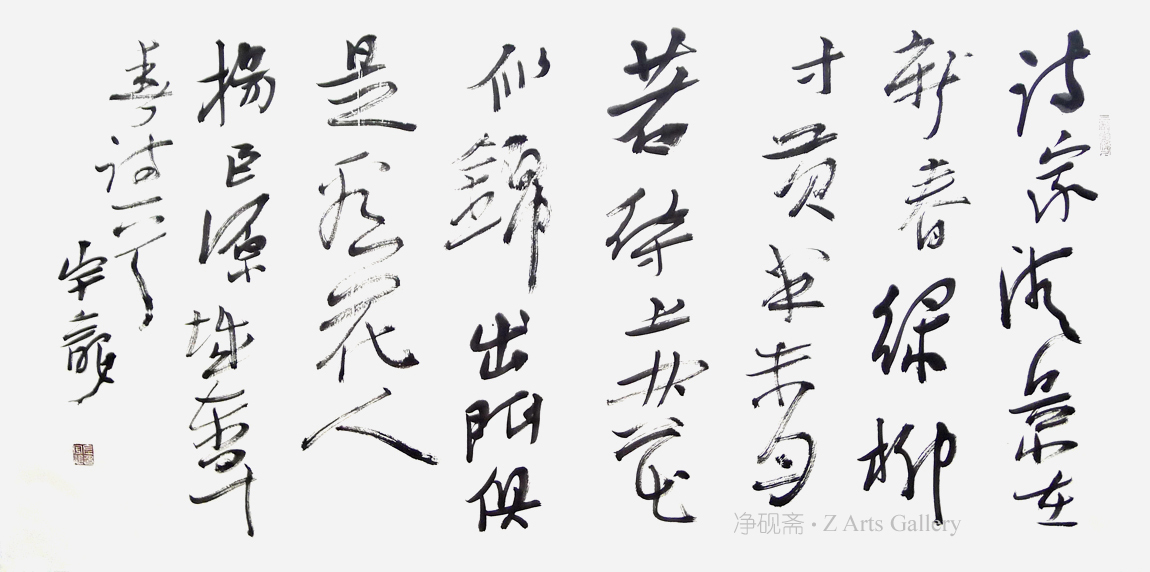 詩家清景在
新春綠柳
才黃半未匀
若待上林花
似錦出門俱
是看花人
楊巨源城東早
春詩一首
净砚斋 · Z Arts Gallery